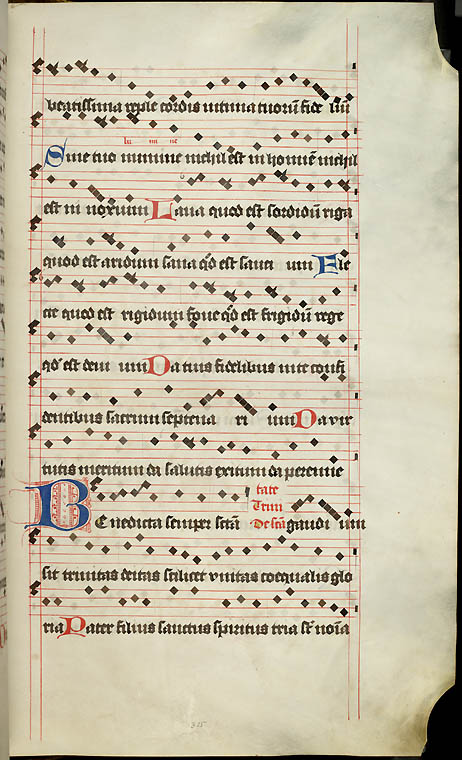 beatissima reple cordis intima tuorū fide liū
lu mi ne
Sine tuo numine nichil est in homīe nichil
est in noxium Laua quod est sordidū riga
quod est aridum sana qd est sauci um Fle
cte quod est rigidum foue qd est frigidū rege
qd est devi um Da tuis fidelibus in te confi
dentibus sacrum septena ri um Da vir
tutis meritum da salutis exitum da perenne
tate
Trini
De scā gaudi um
Benedicta semper scta
sit trinitas deitas scilicet vnitas coequalis glo
ria Pater filius sanctus spiritus tria st noīa
325